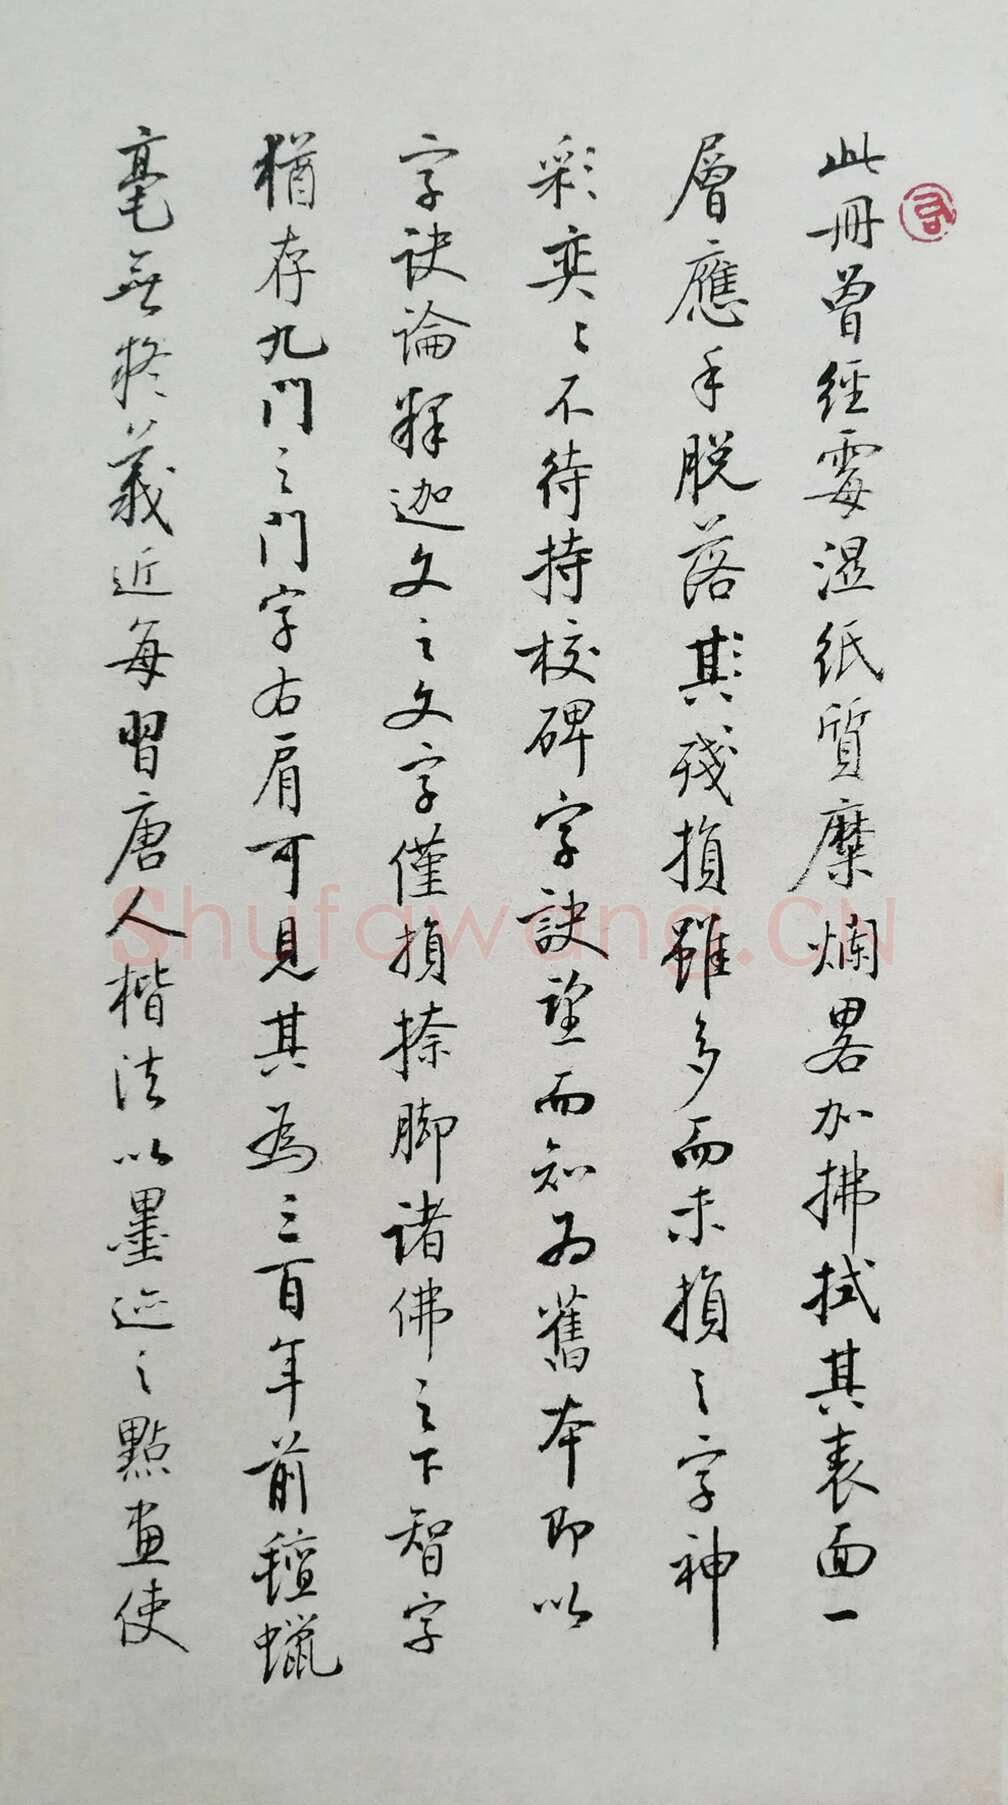 此冊曾經霉湿紙質糜爛畧加拂拭其表面一
層應手脱落其残損雖多而未損之字神
彩奕〻不待持校碑字訣望而知为舊本即以
字訣論釋迦文之文字僅損捺脚诸佛之下智字
猶存九門之門字右肩可見其為三百年前氊蠟
毫無疑義近每習唐人楷法以墨迹之點畫使
Shufawang.CN